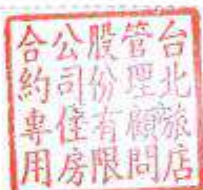 台北旅店
管理顧問
股份有限
公司僅房
合約專用